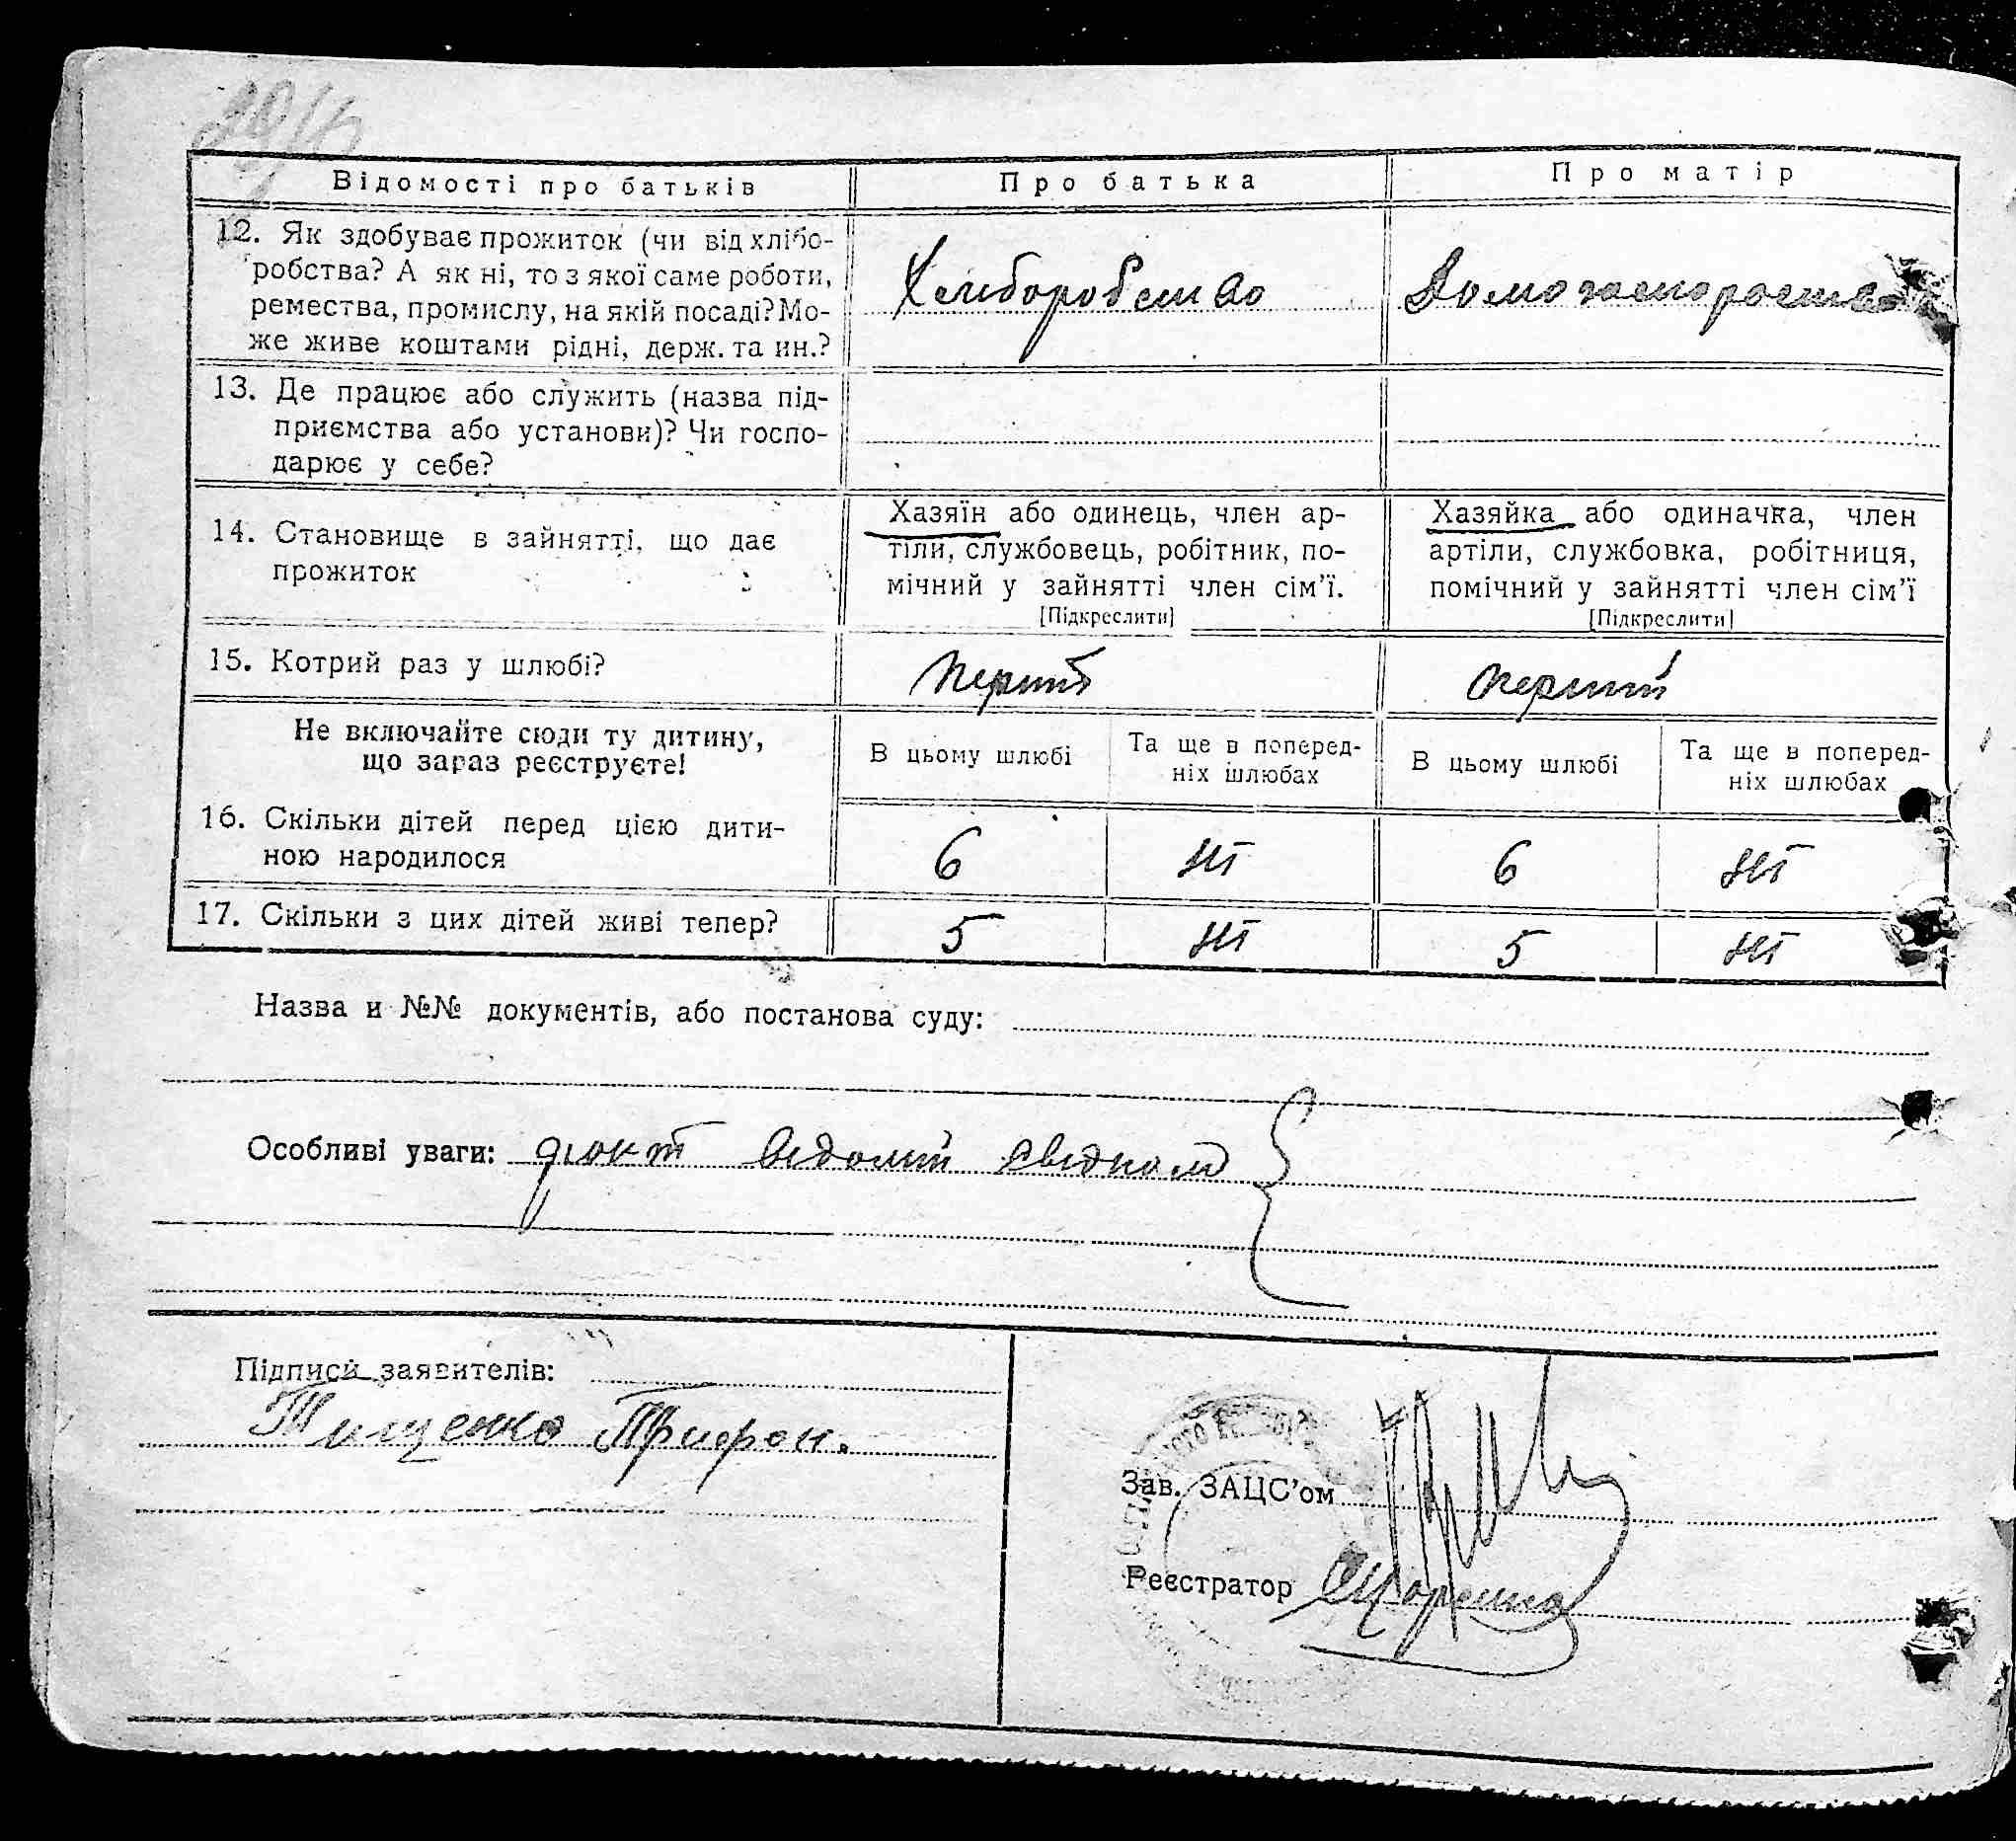 Відомості про батьків
Про батька
Про матір
12. Як здобуває прожиток (чи від хлібо-
робства? А як ні, то з якої саме роботи,
ремества, промислу, на якій посаді? Мо-
же живе коштами рідні, держ. та ин.?
Хліборобство
Домогоспорство
13. Де працює або служить (назва під-
приємства або установи)? Чи госпо-
дарює у себе?
14. Становище в зайнятті, що дає
прожиток
Хазяїн або одинець, член ар-
тіли, службовець, робітник, по-
мічний у зайнятті член сім'ї.
[Підкреслити]
Хазяйка або одиначка, член
артіли, службовка, робітниця,
помічний у зайнятті член сім'ї
[Підкреслити]
15. Котрий раз у шлюбі?
перший
перший
Не включайте сюди ту дитину,
що зараз реєструєте!
В цьому шлюбі
Та ще в поперед-
ніх шлюбах
В цьому шлюбі
Та ще в поперед-
ніх шлюбах
16. Скільки дітей перед цією дити-
ною народилося
6
ні
6
ні
17. Скільки з цих дітей живі тепер?
5
ні
5
ні
Назва и №№ документів, або постанова суду:
Особливі уваги: факт відомий
Підписи заявителів:
Тищенко Трифон.
Зав. ЗАЦС'ом
Реєстратор